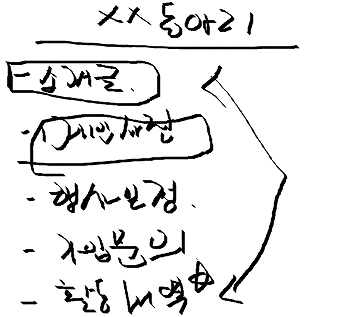 XX 동아리
- 소개글.
- 행사일정.
- 가입문의
- 활동내역